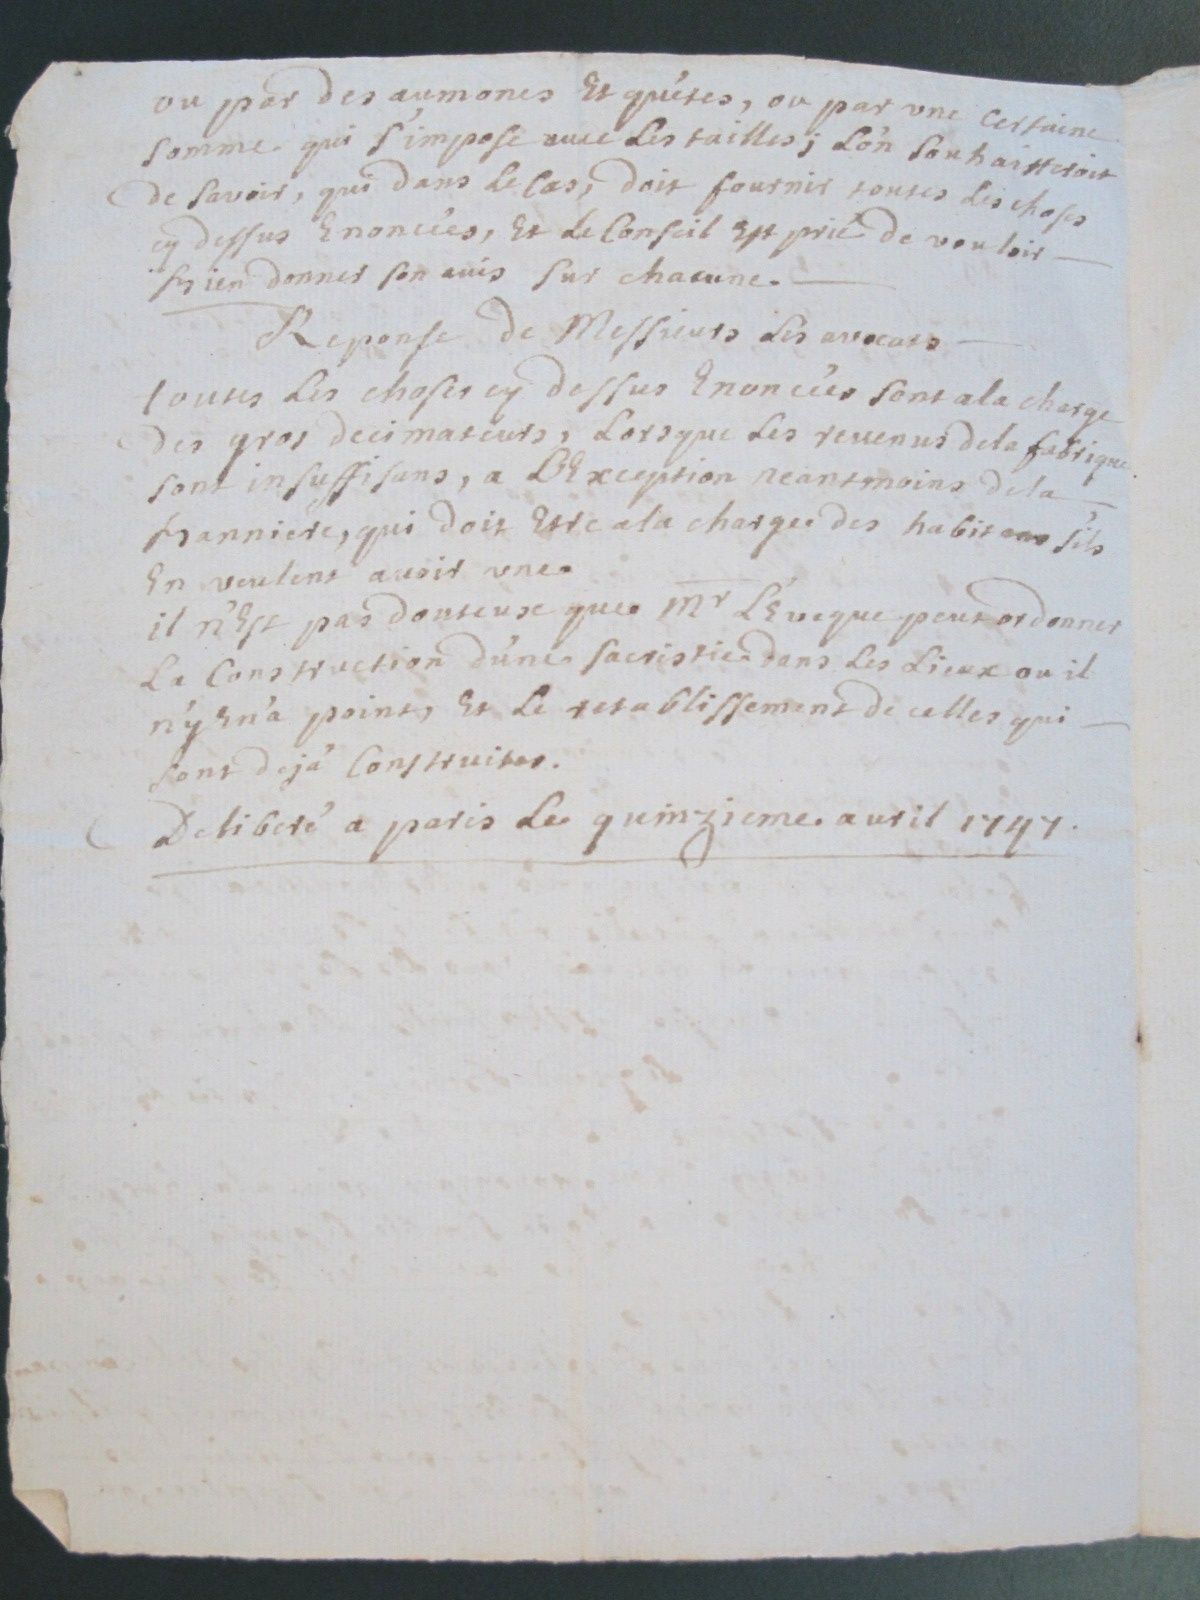 ou par des aumones Et quétes, ou par une Certaine
somme qui s'impose avec Les tailles; L'on souhaitteroit
de savoir, qui dans Le Cas, doit fournir toutes Les choses
cy dessus Enoncées, Et Le Conseil Est prié de vouloir
bien donner son avis sur chacune.
Reponse de Messieurs Les avocats
toutes Les choses cy dessus Enoncées sont a la charge
des gros decimateurs, Lorsque Les revenus de la fabrique
sont insuffisans, a L'Exception neantmoins de la
banniere, qui doit Etre a la charge des habitans s'ils
En veulent avoir une.
il n'Est pas douteux que Mr L'Eveque peut ordonner
La Construction d'une sacristie dans Les Lieux ou il
n'y En a point, Et Le retablissement de celles qui
sont dejá Construites.
Deliberé a paris Le quinzieme avril 1747.